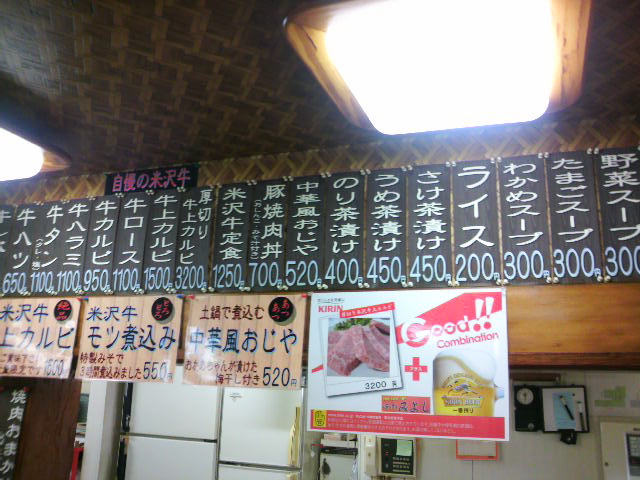 自慢の米沢牛
牛ハツ
650
牛タン
1100
牛ハラミ
1100
牛カルビ
950
牛ロース
1100
牛上カルビ
1500
厚切り
牛上カルビ
3200
米沢牛定食
1250
豚焼肉丼
700
中華風おじや
520
のり茶漬け
400
うめ茶漬け
450
さけ茶漬け
450
ライス
200
わかめスープ
300
たまごスープ
300
野菜スープ
300
米沢牛
上カルビ
米沢牛
モツ煮込み
特製みそで
3時間煮込みました 550円
土鍋で煮込む
中華風おじや
おばあちゃんが漬けた
梅干し付き 520円
KIRIN
厚切り米沢牛上カルビ
3200 円
Good!!
Combination
プラス
みよし
一番搾り
焼肉おまか